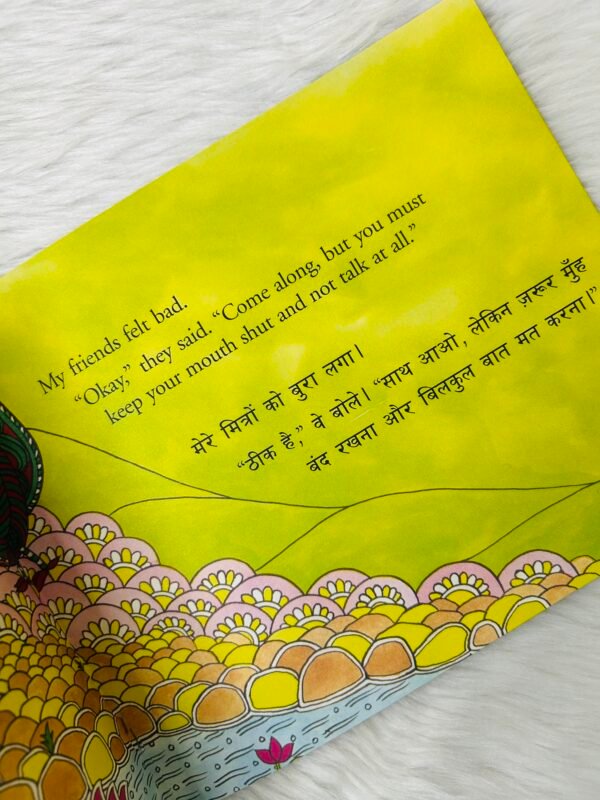 My friends felt bad.
“Okay,” they said. “Come along, but you must
keep your mouth shut and not talk at all.”
मेरे मित्रों को बुरा लगा।
“ठीक है,” वे बोले। “साथ आओ, लेकिन ज़रूर मुँह
बंद रखना और बिलकुल बात मत करना।”